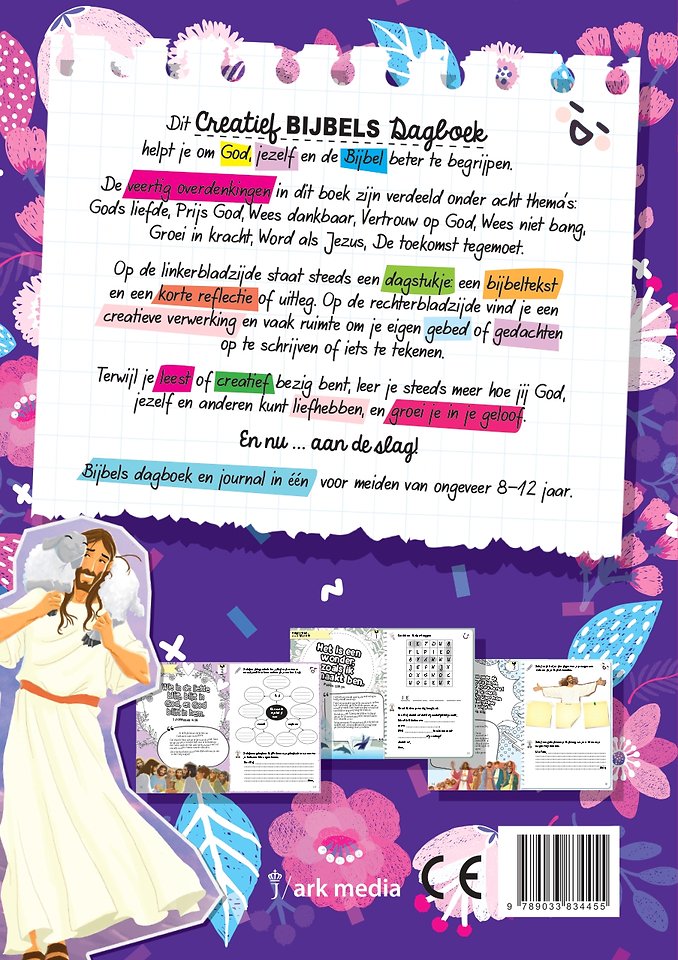 Dit Creatief BIJBELS Dagboek
helpt je om God, jezelf en de Bijbel beter te begrijpen.
De veertig overdenkingen in dit boek zijn verdeeld onder acht thema's:
Gods liefde, Prijs God, Wees dankbaar, Vertrouw op God, Wees niet bang,
Groei in kracht, Word als Jezus, De toekomst tegemoet.
Op de linkerbladzijde staat steeds een dagstukje: een bijbeltekst
en een korte reflectie of uitleg. Op de rechterbladzijde vind je een
creatieve verwerking en vaak ruimte om je eigen gebed of gedachten
op te schrijven of iets te tekenen.
Terwijl je leest of creatief bezig bent, leer je steeds meer hoe jij God,
jezelf en anderen kunt liefhebben, en groei je in je geloof.
En nu ... aan de slag!
Bijbels dagboek en journal in één voor meiden van ongeveer 8–12 jaar.
Wie in de liefde
blijft, blijft in
God, en God
blijft in hem.
Het is een
wonder
zoals ik
gemaakt ben.
j/ark media
CE
9 789033 834455